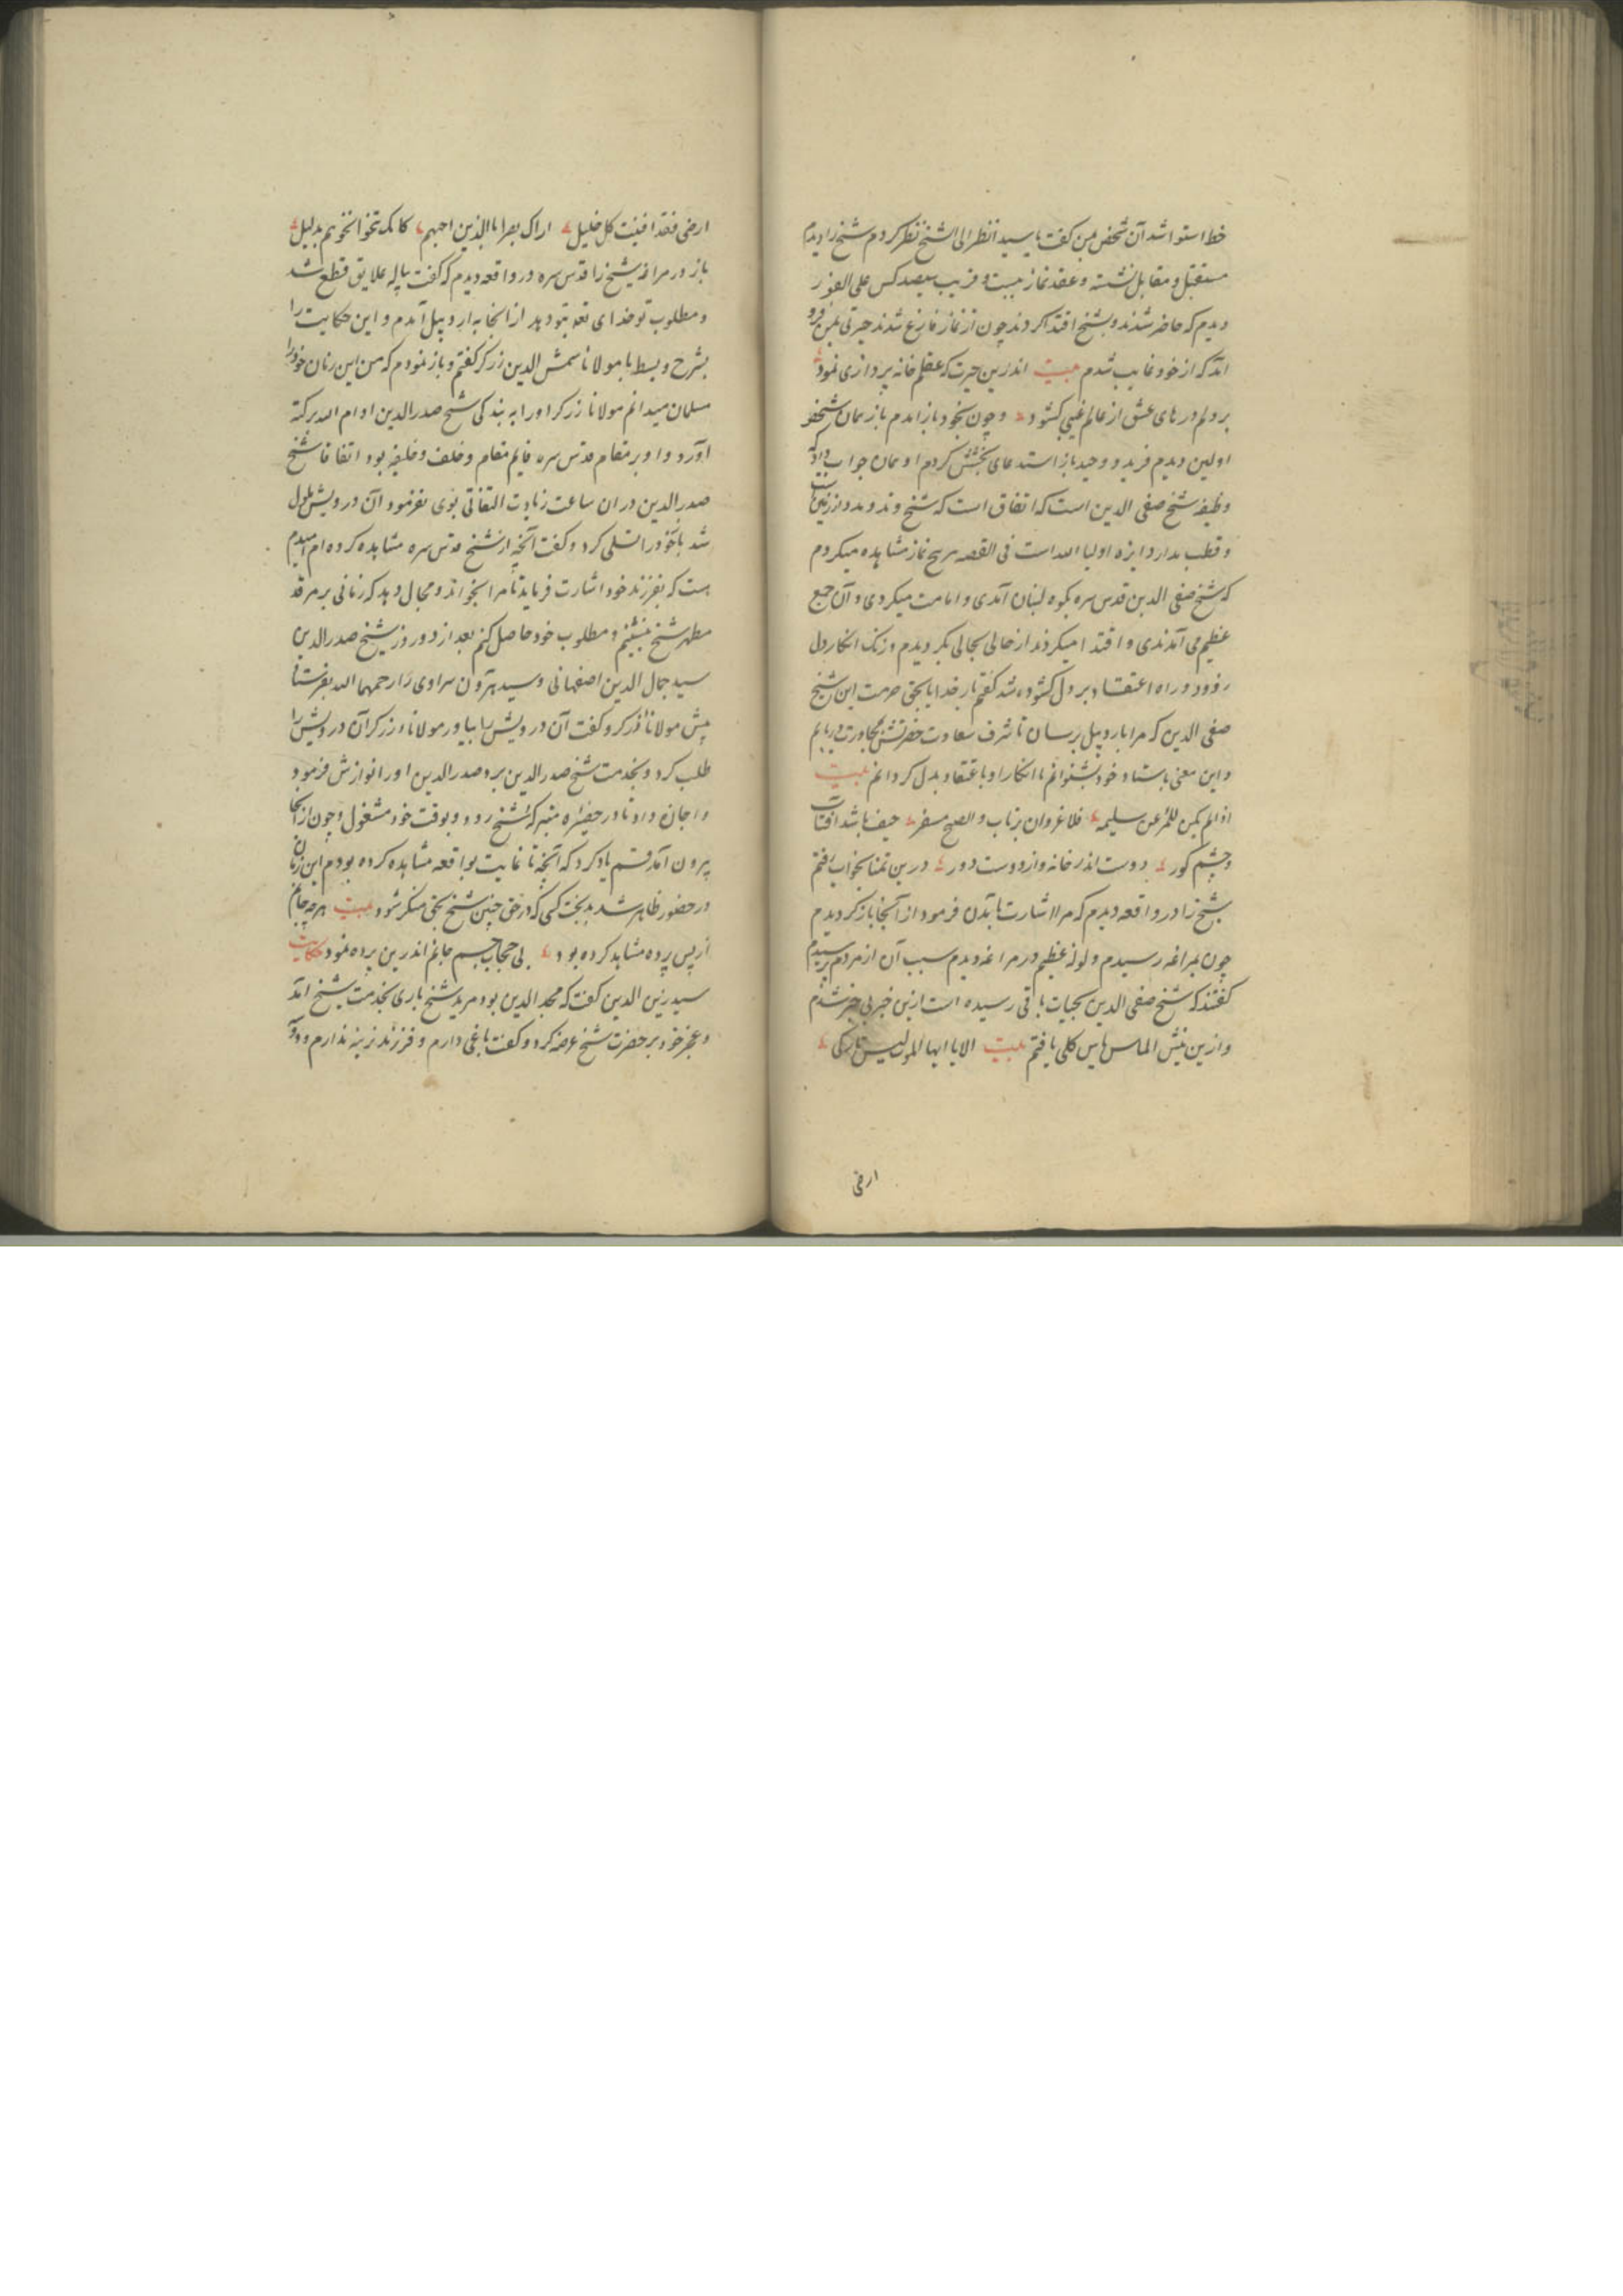 خط استوا شد آن شخص بمن گفت یا سید انظر الی الشیخ نظر کردم شیخ را دیدم
مستقبل و مقابل نشسته و عقد نماز ببست و قریب سیصد کس علی الفور
دیدم که حاضر شدند و بشیخ اقتدا کردند چون از نماز فارغ شدند حیرتی بمن فرو
آمد که از خود غایب شدم بیت اندرین حیرت که عقلم خانه پردازی نمود
بر دلم درهای عشق از عالم غیبی گشود و چون بخود باز آمدم باز بمان شخص
اولین دیدم فرید و وحید باز استدعای بخشش کردم او همان جواب داد که
وظیفه شیخ صفی الدین است که اتفاق است که شیخ
و قطب مدار دایره اولیا الله است فی القصه پنج نماز مشاهده میکردم
که شیخ صفی الدین قدس سره بکوه لبنان آمدی و امامت میکردی و آن جمع
عظیم می آمدندی و اقتدا میکردند از حالی بحالی بگردیدم و زنک انکار دل
زدود و راه اعتقاد بر دل گشوده شد گفتم بار خدایا بحق حرمت این شیخ
صفی الدین که مرا باردبیل رسان تا شرف سعادت حضرتش مجاورت دریابم
و این معنی باستاد خود بشنوانم تا انکار او باعتقاد بدل گردانم بیت
اذا لم یکن للمرء عین سلیمه فلا غرو ان یرتاب و الصبح مسفر حیف باشد آفتاب
و چشم کور دوست اندر خانه و از دوست دور درین تمنا بخواب رفتم
شیخ را در واقعه دیدم که مرا اشارت بآمدن فرمود از آنجا باز گردیدم
چون بمراغه رسیدم ولوله عظیم در مراغه دیدم سبب آن از مردم پرسیدم
گفتند که شیخ صفی الدین بحیات باقی رسیده است ازین خبر بی خبر شدم
و ازین نیش الماس یاس کلی یافتم بیت الا یا ایها الموت لیس تارکی
ارضی
ارضی فقد افنیت کل خلیل اراک بصیرا بالذین احبهم کانک تنحو نحوهم بدلیل
باز در مراغه شیخ را قدس سره در واقعه دیدم که گفت علایق قطع شد
و مطلوب تو خدای تعه بتو دهد از آنجا به اردبیل آمدم و این حکایت را
بشرح و بسط با مولانا شمس الدین زرکر گفتم و باز نمودم که من این زمان خود را
مسلمان میدانم مولانا زرکر او را به بندگی شیخ صدرالدین ادام الله برکته
آورد و او بر مقام قدس سره قایم مقام و خلف و خلیفه بود اتفاقا شیخ
صدرالدین در آن ساعت زیادت التفاتی بوی نفرمود آن درویش ملول
شد باز خود را تسلی کرد و گفت آنچه از شیخ قدس سره مشاهده کرده ام امیدم
هست که بفرزند خود اشارت فرماید تا مرا بخواند و مجال دهد که زمانی بر مرقد
مطهر شیخ بنشینم و مطلوب خود حاصل کنم بعد از دو روز شیخ صدرالدین
سید جمال الدین اصفهانی و سید هرون سراوی را رحمهما الله بفرستاد
پیش مولانا زرکر و گفت آن درویش را بیاور مولانا زرکر آن درویش را
طلب کرد و بخدمت شیخ صدرالدین برد صدرالدین او را نوازش فرمود
و اجازه داد تا در حضیره متبرکه شیخ رود و بوقت خود مشغول و چون از آنجا
بیرون آمد قسم یاد کرد که آنچه تا غایت بواقعه مشاهده کرده بودم این زمان
در حضور ظاهر شد بدبخت کسی که در حق چنین شیخ بحق منکر شود بیت هر چه جانم
از پس پرده مشاهد کرده بود بی حجاب جسم جانم اندرین پرده نمود حکایت
سید زین الدین گفت که مجد الدین بود مرید شیخ باری بخدمت شیخ آمد
و عجز خود بر حضرت شیخ عرضه کرد و گفت باغی دارم و فرزند نرینه ندارم و